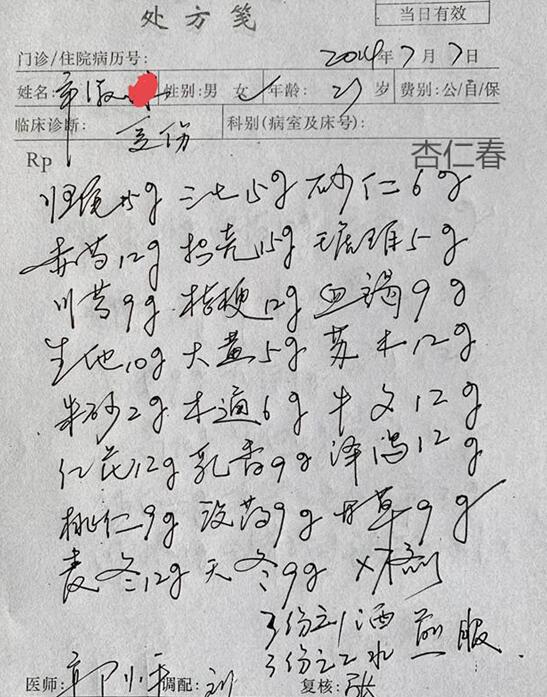 处方笺
当日有效
门诊/住院病历号: 2014年7月7日
姓名: 章淑 性别:男 女✓ 年龄: 27 岁 费别:公/自/保
临床诊断: 科别(病室及床号):
杏仁春
Rp
归尾15g 三七15g 砂仁6g
赤芍12g 枳壳15g 琥珀5g
川芎9g 桔梗12g 血竭9g
生地10g 大黄5g 苏木12g
朱砂2g 木通6g 牛文12g
红花12g 乳香9g 泽泻12g
桃仁9g 没药9g 甘草9g
麦冬12g 天冬9g
3份之1酒 煎服
3份之2水
医师: 调配: 刘 复核: 张